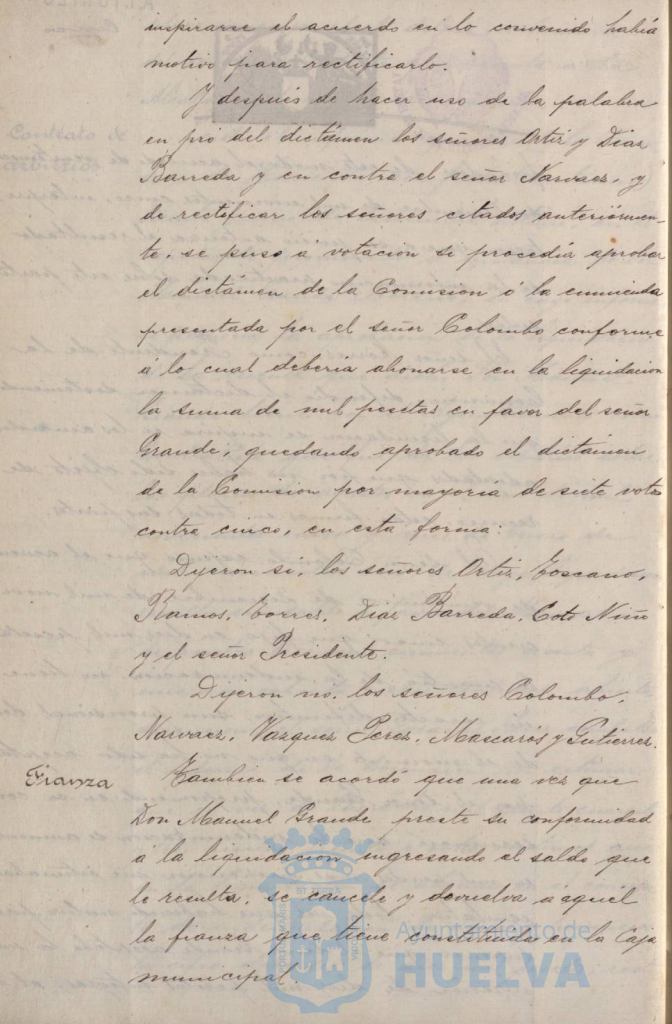 inspirarse el acuerdo en lo convenido había
motivo para rectificarlo.
Y después de hacer uso de la palabra
en pró del dictámen los señores Ortiz y Diaz
Barreda y en contra el señor Narvaez, y
de rectificar los señores citados anteriormen-
te, se puso á votacion si procedía aprobar
el dictámen de la Comision ó la enmienda
presentada por el señor Colombo conforme
á lo cual debería abonarse en la liquidacion
la suma de mil pesetas en favor del señor
Grande, quedando aprobado el dictámen
de la Comision por mayoria de siete votos
contra cinco, en esta forma:
Dijeron si, los señores Ortiz, Toscano,
Ramos, Torres, Diaz Barreda, Coto Niño
y el señor Presidente.
Dijeron no, los señores Colombo,
Narvaez, Vazquez Perez, Mascarós y Gutierrez.
Fianza
Tambien se acordó que una vez que
Don Manuel Grande preste su conformidad
á la liquidación ingresando el saldo que
le resulta, se cancele y devuelva á aquél
la fianza que tiene constituida en la Caja
municipal.
Ayuntamiento de
HUELVA